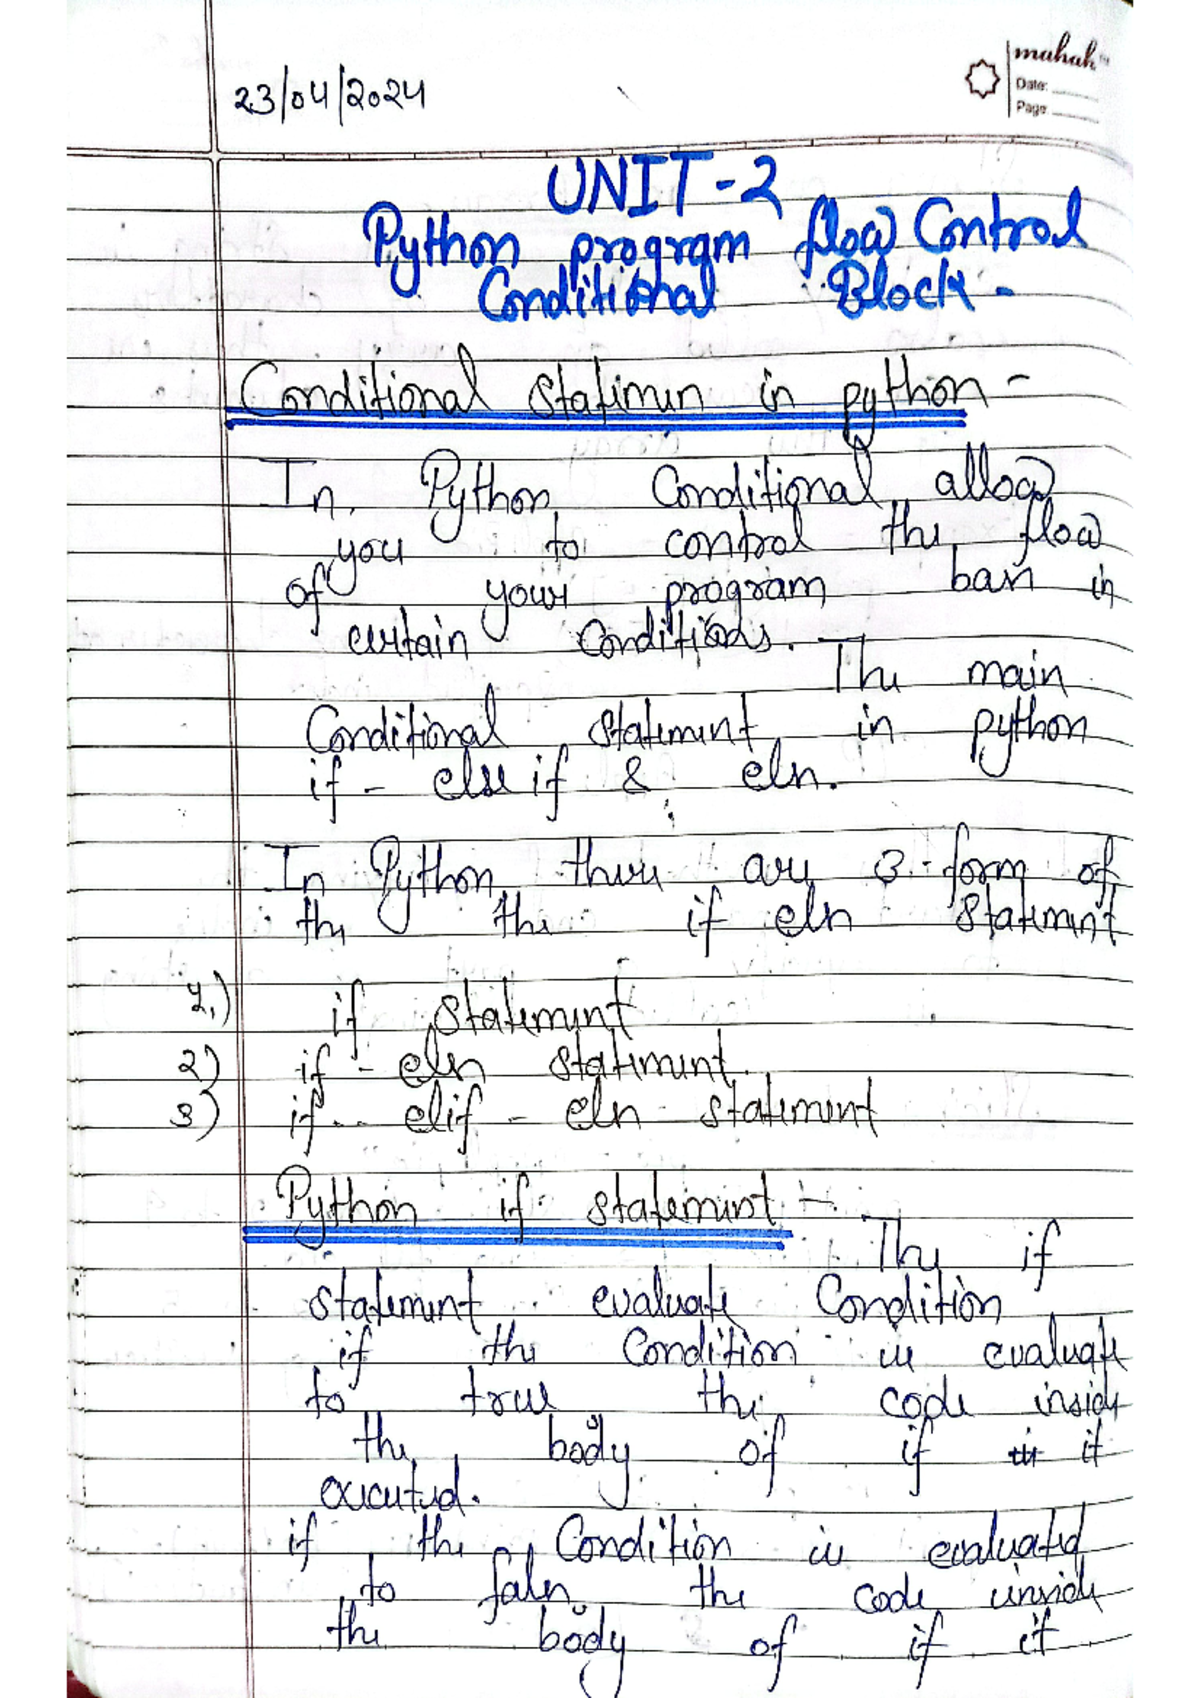 mahak
Date:
Page
23/04/2024
UNIT-2
Python program flow Control
Conditional Block -
Conditional statimun in python -
In Python Conditional allow
you to control the flow
of your program in
certain Conditions.
The main
Conditional statement in python
if - else if & else.
In Python there are 3 form of
the the if else statement
1.) if statement
2) if - else statement
3) if - elif - else statement
Python if statement :-
The if
statement evaluate Condition
if the Condition is evaluate
to true the code inside
the body of if it
executed.
if the Condition is evaluated
to false the code inside
the body of if it